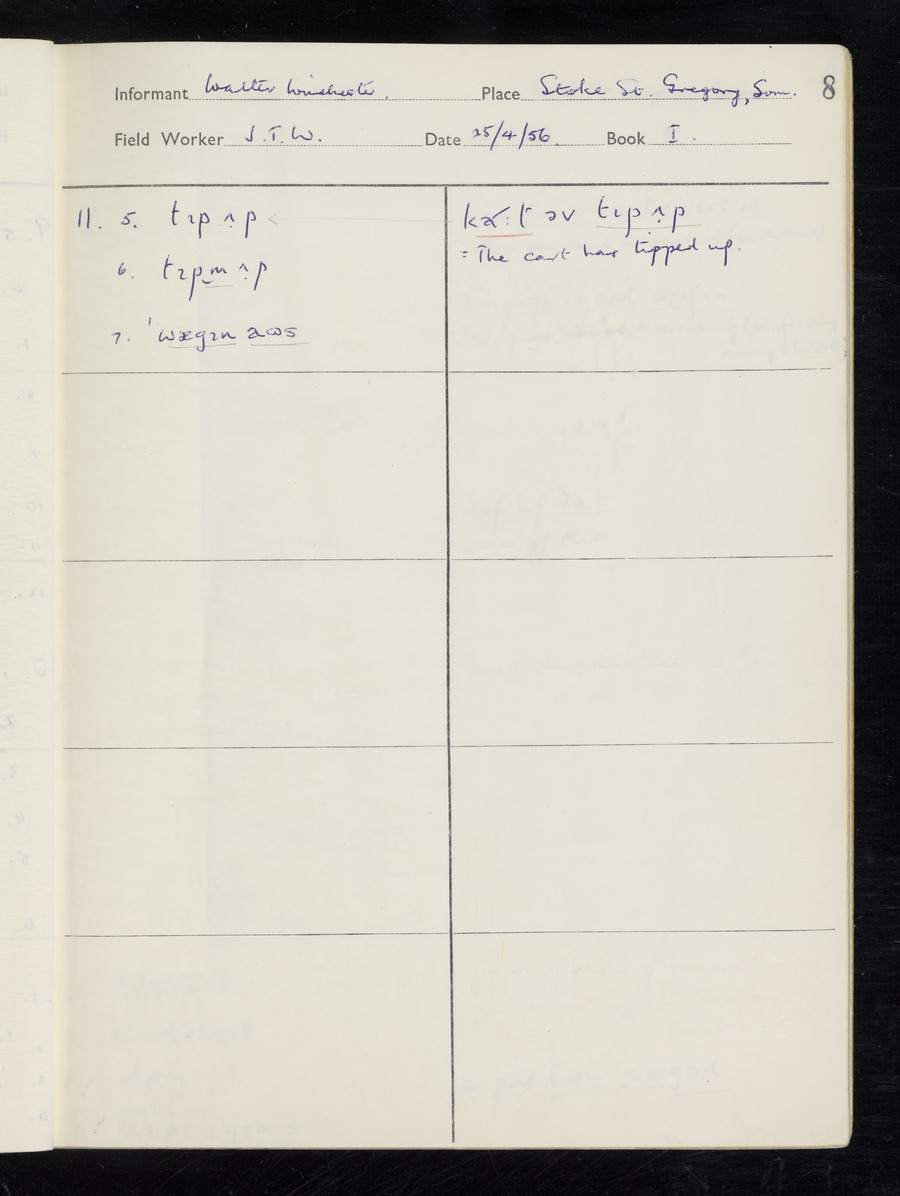 Informant Walter Winchester. Place Stoke St. Gregory, Som. 8
Field Worker J.T.W. Date 25/4/56 Book I.
11. 5. tɪp ʌp
kaː.t əv tɪp ʌp
= The cart has tipped up.
6. tɪpm ʌp
7. ˈwægɪn aʊs